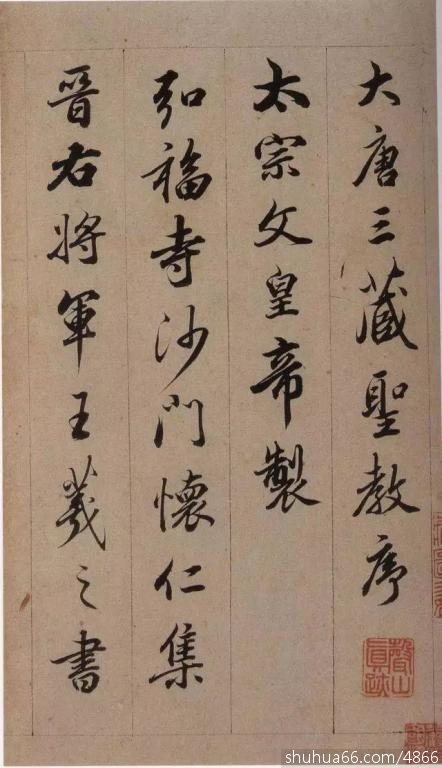 大唐三藏聖教序
太宗文皇帝製
弘福寺沙門懷仁集
晉右將軍王羲之書
shuhua66.com/4866